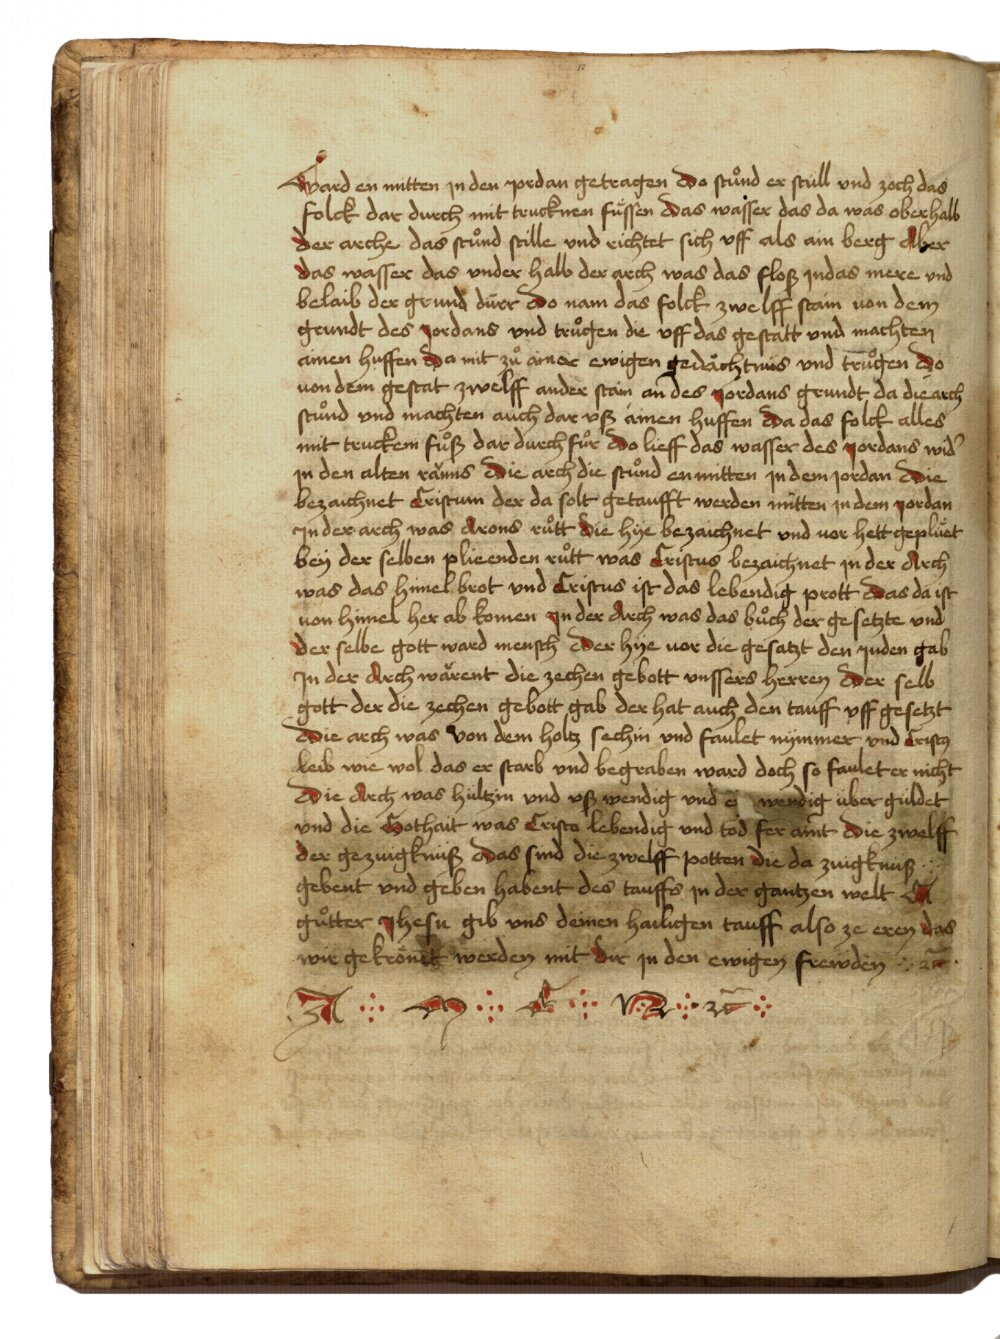 ward en mitten jn den yordan getragen Do stůnd er still vnd zoch das
folck dar durch mit trucknen füssen das wasser das da was oberhalb
der arche das stůnd stille vnd richtet sich vff als ain berg Aber
das wasser das vnder halb der arch was das floß jn das mere vnd
belaib der grund dürr Do nam das folck zwelff stain von dem
grundt des jordans vnd trůgen die vff das gestatt vnd machten
ainen huffen Da mit zů ainer ewigen gedächtnus vnd trůgen Do
von dem gestat zwelff ander stain an des jordans grundt da die arch
stůnd vnd machten auch dar vß ainen huffen Da das folck alles
mit truckem fůß dar durch fůr Do lieff das wasser des jordans wid'
jn den alten ränns Die arch die stůnd en mitten jn dem jordan Die
bezaichnet Cristum der da solt getaufft werden mitten jn dem jordan
Jn der arch was Arons růtt die hÿe bezaichnet vnd vor hett geplüet
beÿ der selben plüenden růtt was Cristus bezaichnet jn der Arch
was das himel brot vnd Cristus ist das lebendig prott Das da ist
von himel her ab komen Jn der Arch was das bůch der gesetzte vnd
der selbe gott ward mensch Der hÿe vor die gesatzt den juden gab
Jn der Arch wärent die zechen gebott vnssers herren Der selb
gott der die zechen gebott gab der hat auch den tauff vff gesetzt
Die arch was von dem holtz sechin vnd faulet nÿmmer vnd Cristus
leib wie wol das er starb vnd begraben ward doch so faulet er nicht
Die Arch was hültzin vnd vß wendig vnd wendig über guldet
vnd die Gothait was Cristo lebendig vnd tod fer aint Die zwelff
der gezuigknuß Das sind die zwelff potten die da zuigknuß
gebent vnd geben habent des tauffs jn der gantzen welt
gůtter jhesu gib vns deinen hailigen tauff also ze eren das
wir gekrönet werden mit dir jn den ewigen frewden ꝛc
A M E N ꝛc